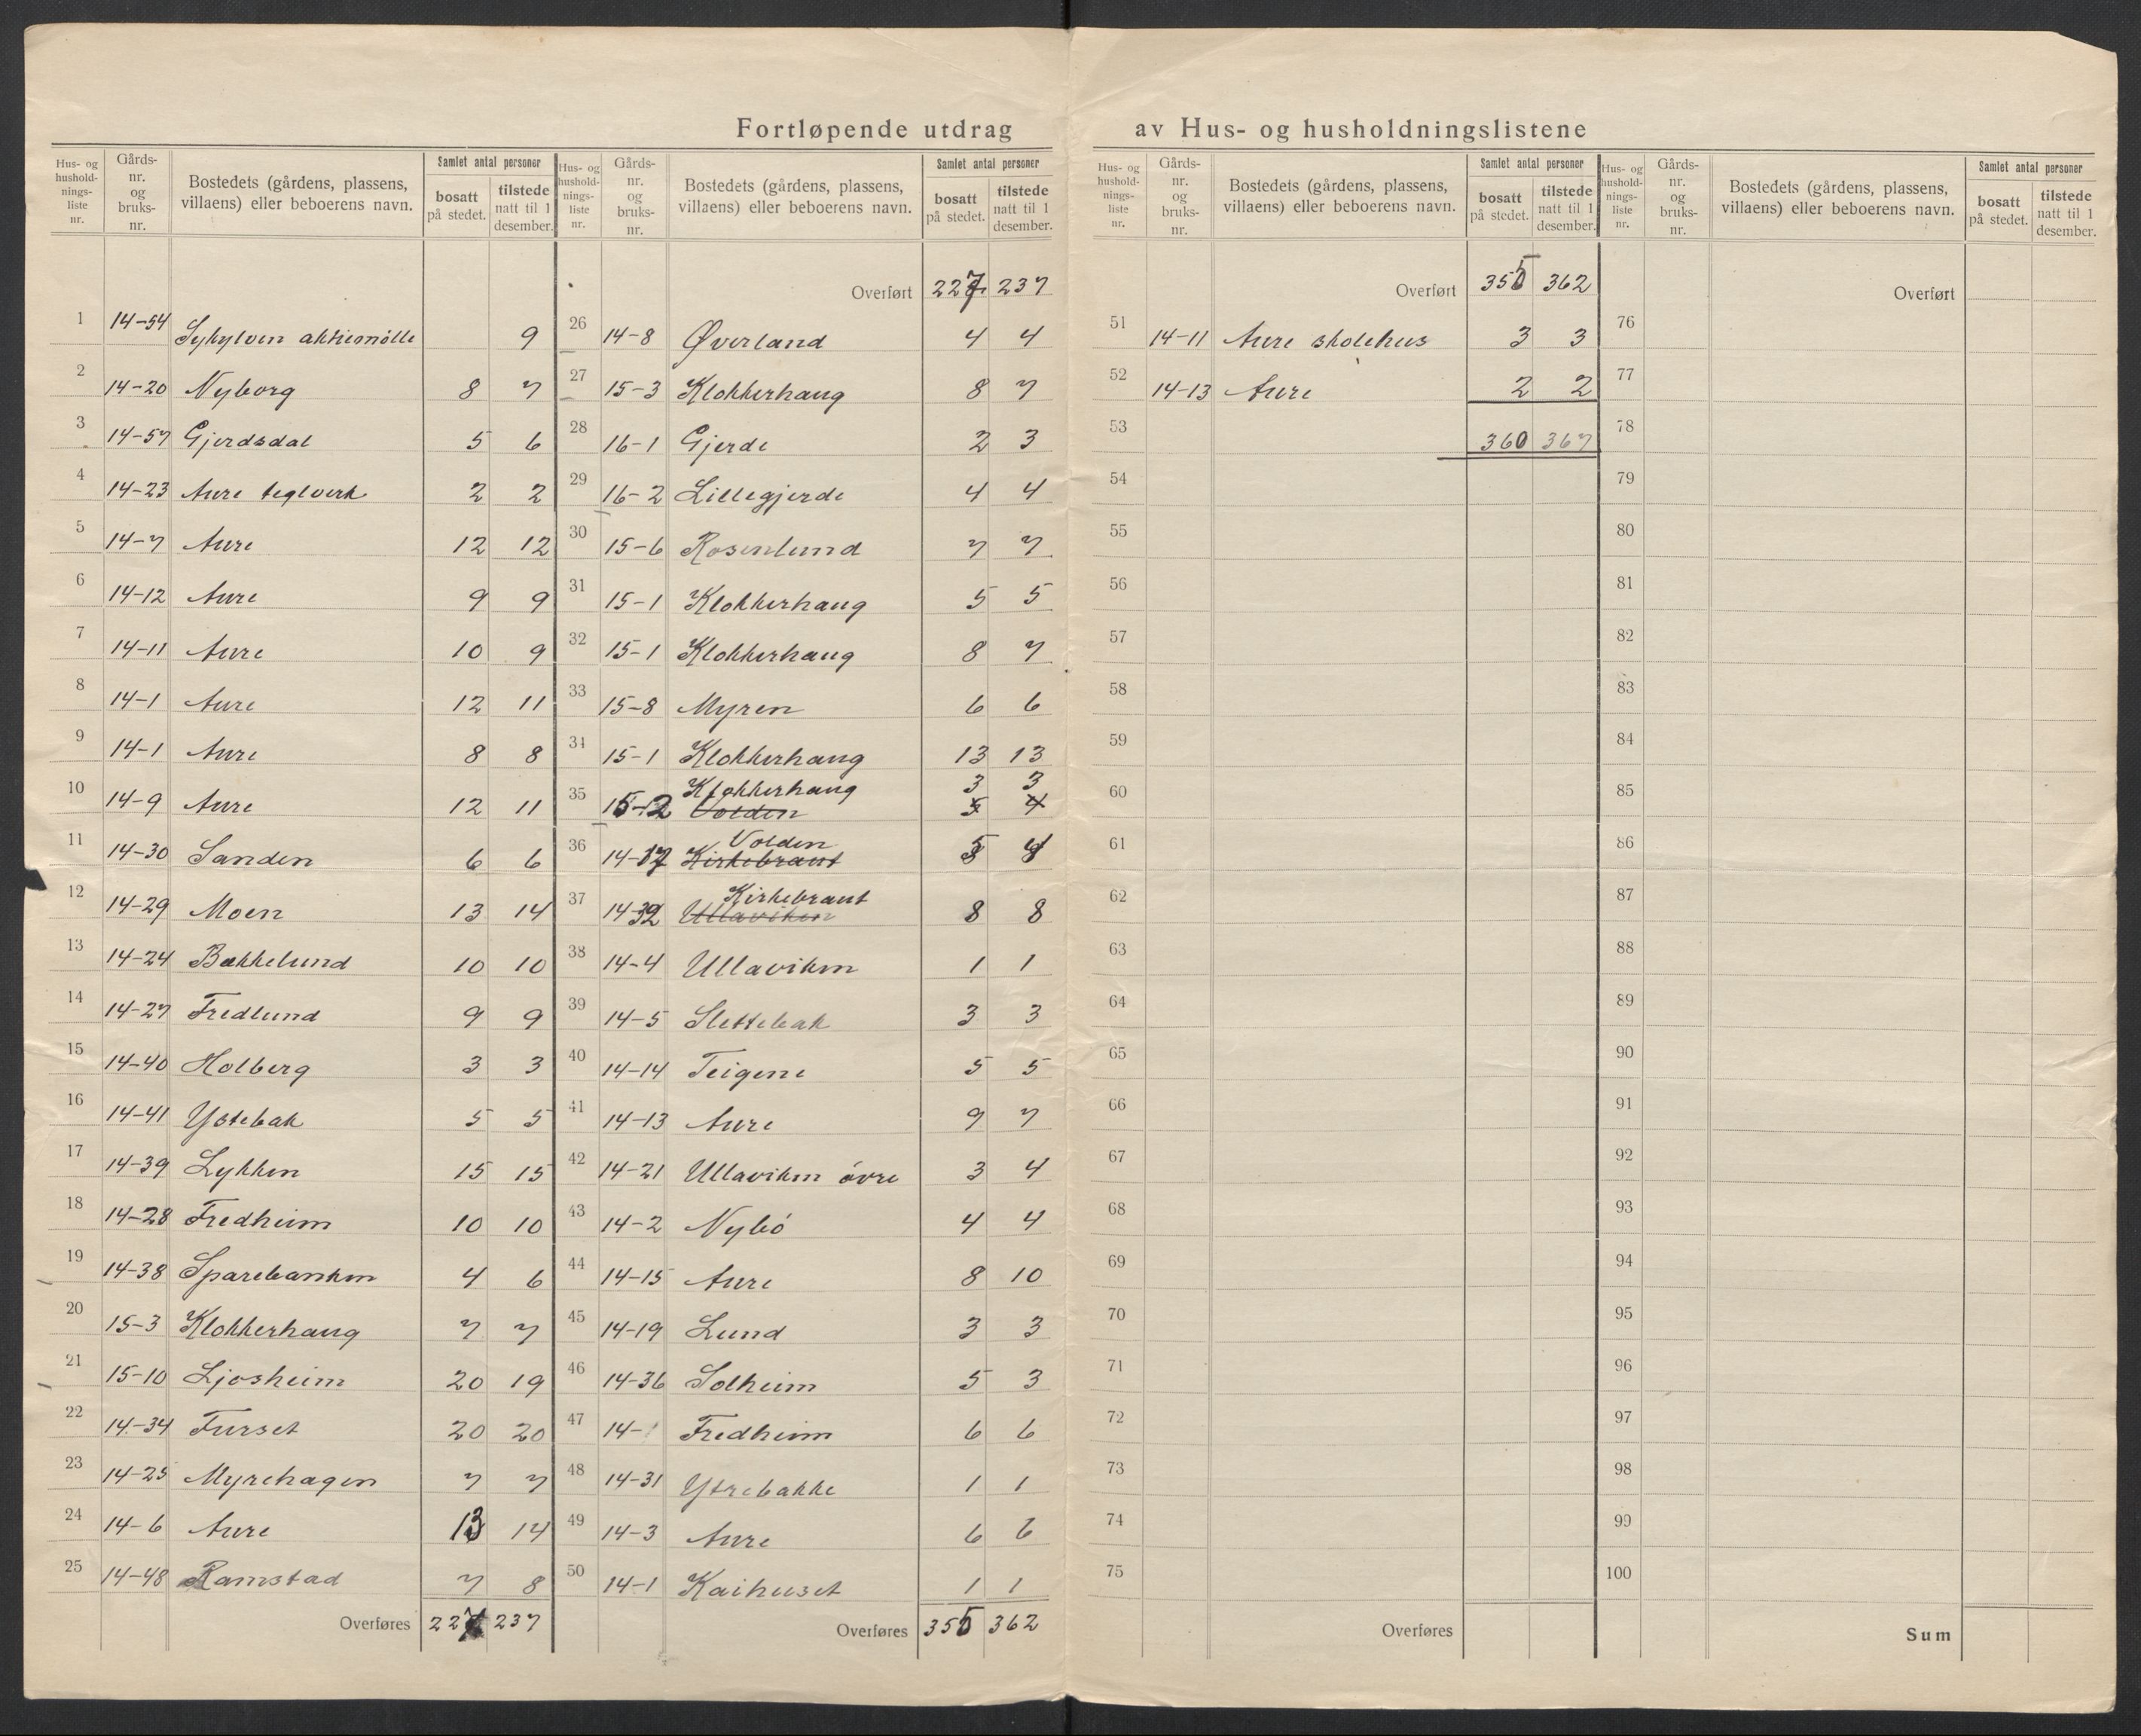 Fortløpende utdrag av Hus- og husholdningslistene
Hus- og husholdningsliste nr. Gårds-nr. og bruks-nr. Bostedets (gårdens, plassens, villaens) eller beboerens navn. Samlet antal personer bosatt på stedet. tilstede natt til 1 desember.
1 14-54 Sykylven aktiemölle 9
2 14-20 Nyborg 8 7
3 14-57 Gjerdsdal 5 6
4 14-23 Aure teglverk 2 2
5 14-7 Aure 12 12
6 14-12 Aure 9 9
7 14-11 Aure 10 9
8 14-1 Aure 12 11
9 14-1 Aure 8 8
10 14-9 Aure 12 11
11 14-30 Sanden 6 6
12 14-29 Moen 13 14
13 14-24 Bakkelund 10 10
14 14-27 Fredlund 9 9
15 14-40 Holberg 3 3
16 14-41 Ystebak 5 5
17 14-39 Lykken 15 15
18 14-28 Fredheim 10 10
19 14-38 Sparebanken 4 6
20 15-3 Klokkerhaug 7 7
21 15-10 Ljosheim 20 19
22 14-34 Furset 20 20
23 14-25 Myrehagen 7 7
24 14-6 Aure 13 14
25 14-48 Ramstad 7 8
Overføres 227 237
Hus- og husholdningsliste nr. Gårds-nr. og bruks-nr. Bostedets (gårdens, plassens, villaens) eller beboerens navn. Samlet antal personer bosatt på stedet. tilstede natt til 1 desember.
Overført 227 237
26 14-8 Øverland 4 4
27 15-3 Klokkerhaug 8 7
28 16-1 Gjerde 2 3
29 16-2 Lillegjerde 4 4
30 15-6 Rosenlund 7 7
31 15-1 Klokkerhaug 5 5
32 15-1 Klokkerhaug 8 7
33 15-8 Myren 6 6
34 15-1 Klokkerhaug 13 13
Klokkerhaug 3 3
35 15-12 Volden 5 4
Volden
36 14-17 Kirkebraut 5 4
Kirkebraut
37 14-32 Ullaviken 8 8
38 14-4 Ullaviken 1 1
39 14-5 Slettebak 3 3
40 14-14 Teigene 5 5
41 14-13 Aure 9 7
42 14-21 Ullaviken övre 3 4
43 14-2 Nybö 4 4
44 14-15 Aure 8 10
45 14-19 Lund 3 3
46 14-36 Solheim 5 3
47 14-1 Fredheim 6 6
48 14-31 Ytrebakke 1 1
49 14-3 Aure 6 6
50 14-1 Kaihuset 1 1
Overføres 355 362
Hus- og husholdningsliste nr. Gårds-nr. og bruks-nr. Bostedets (gårdens, plassens, villaens) eller beboerens navn. Samlet antal personer bosatt på stedet. tilstede natt til 1 desember.
Overført 355 362
51 14-11 Aure skolehus 3 3
52 14-13 Aure 2 2
53 360 367
54
55
56
57
58
59
60
61
62
63
64
65
66
67
68
69
70
71
72
73
74
75
Overføres
Hus- og husholdningsliste nr. Gårds-nr. og bruks-nr. Bostedets (gårdens, plassens, villaens) eller beboerens navn. Samlet antal personer bosatt på stedet. tilstede natt til 1 desember.
Overført
76
77
78
79
80
81
82
83
84
85
86
87
88
89
90
91
92
93
94
95
96
97
98
99
100
Sum